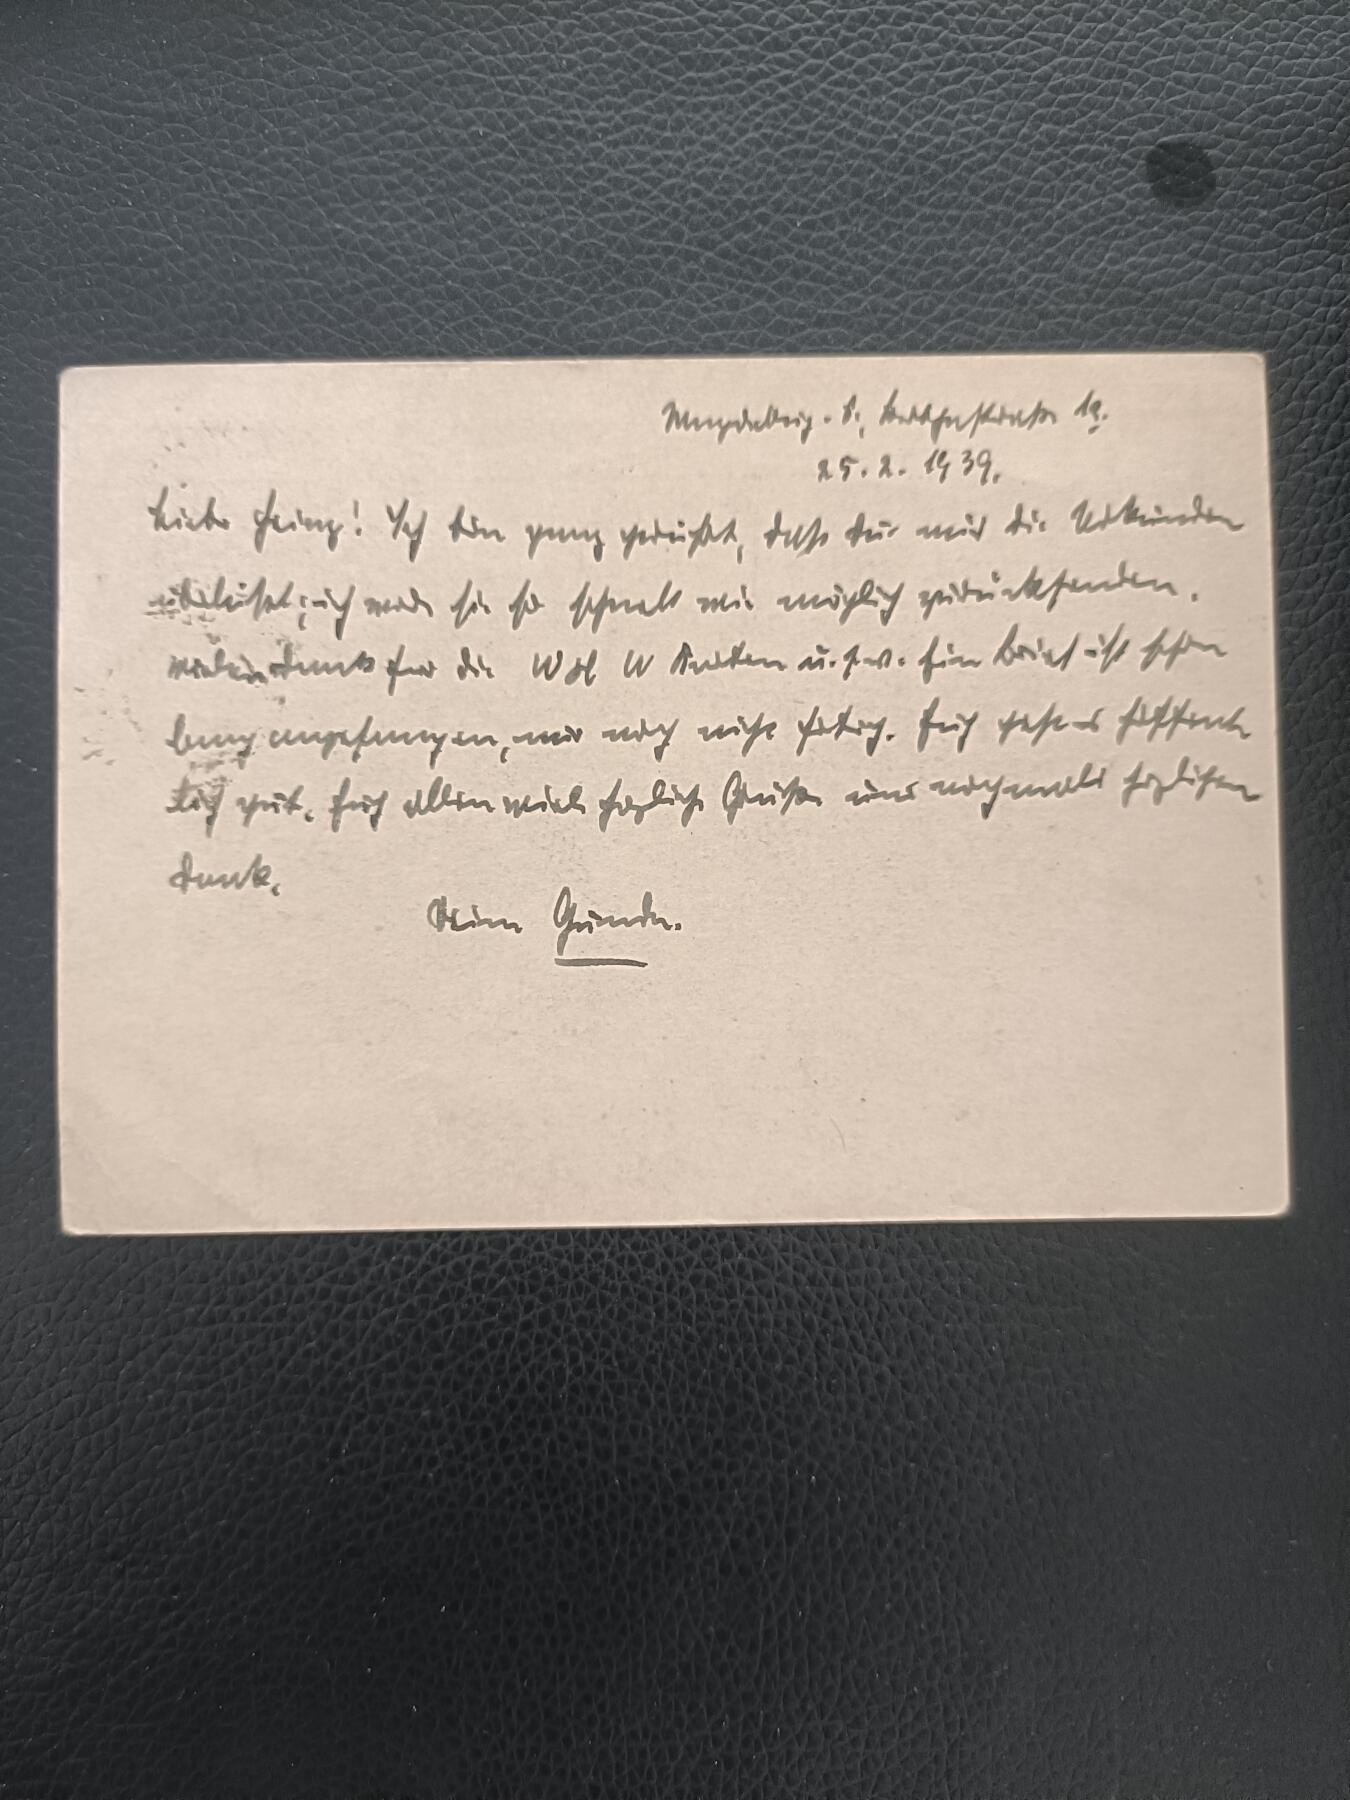 Magdeburg. S., 1a.
25. 2. 1939.
Lieber Heinz! Ich bin ganz gerührt, daß Du mir die Urkunden
ich werde sie so schnell wie möglich zurücksenden.
Vielen Dank für die W H W Karten u.s.w. Ein Brief ist schon
lang angefangen, nur noch nicht fertig. Euch geht es hoffent-
lich gut. Euch allen viele herzliche Grüße und nochmals herzlichen
Dank.
Deine Gunda.